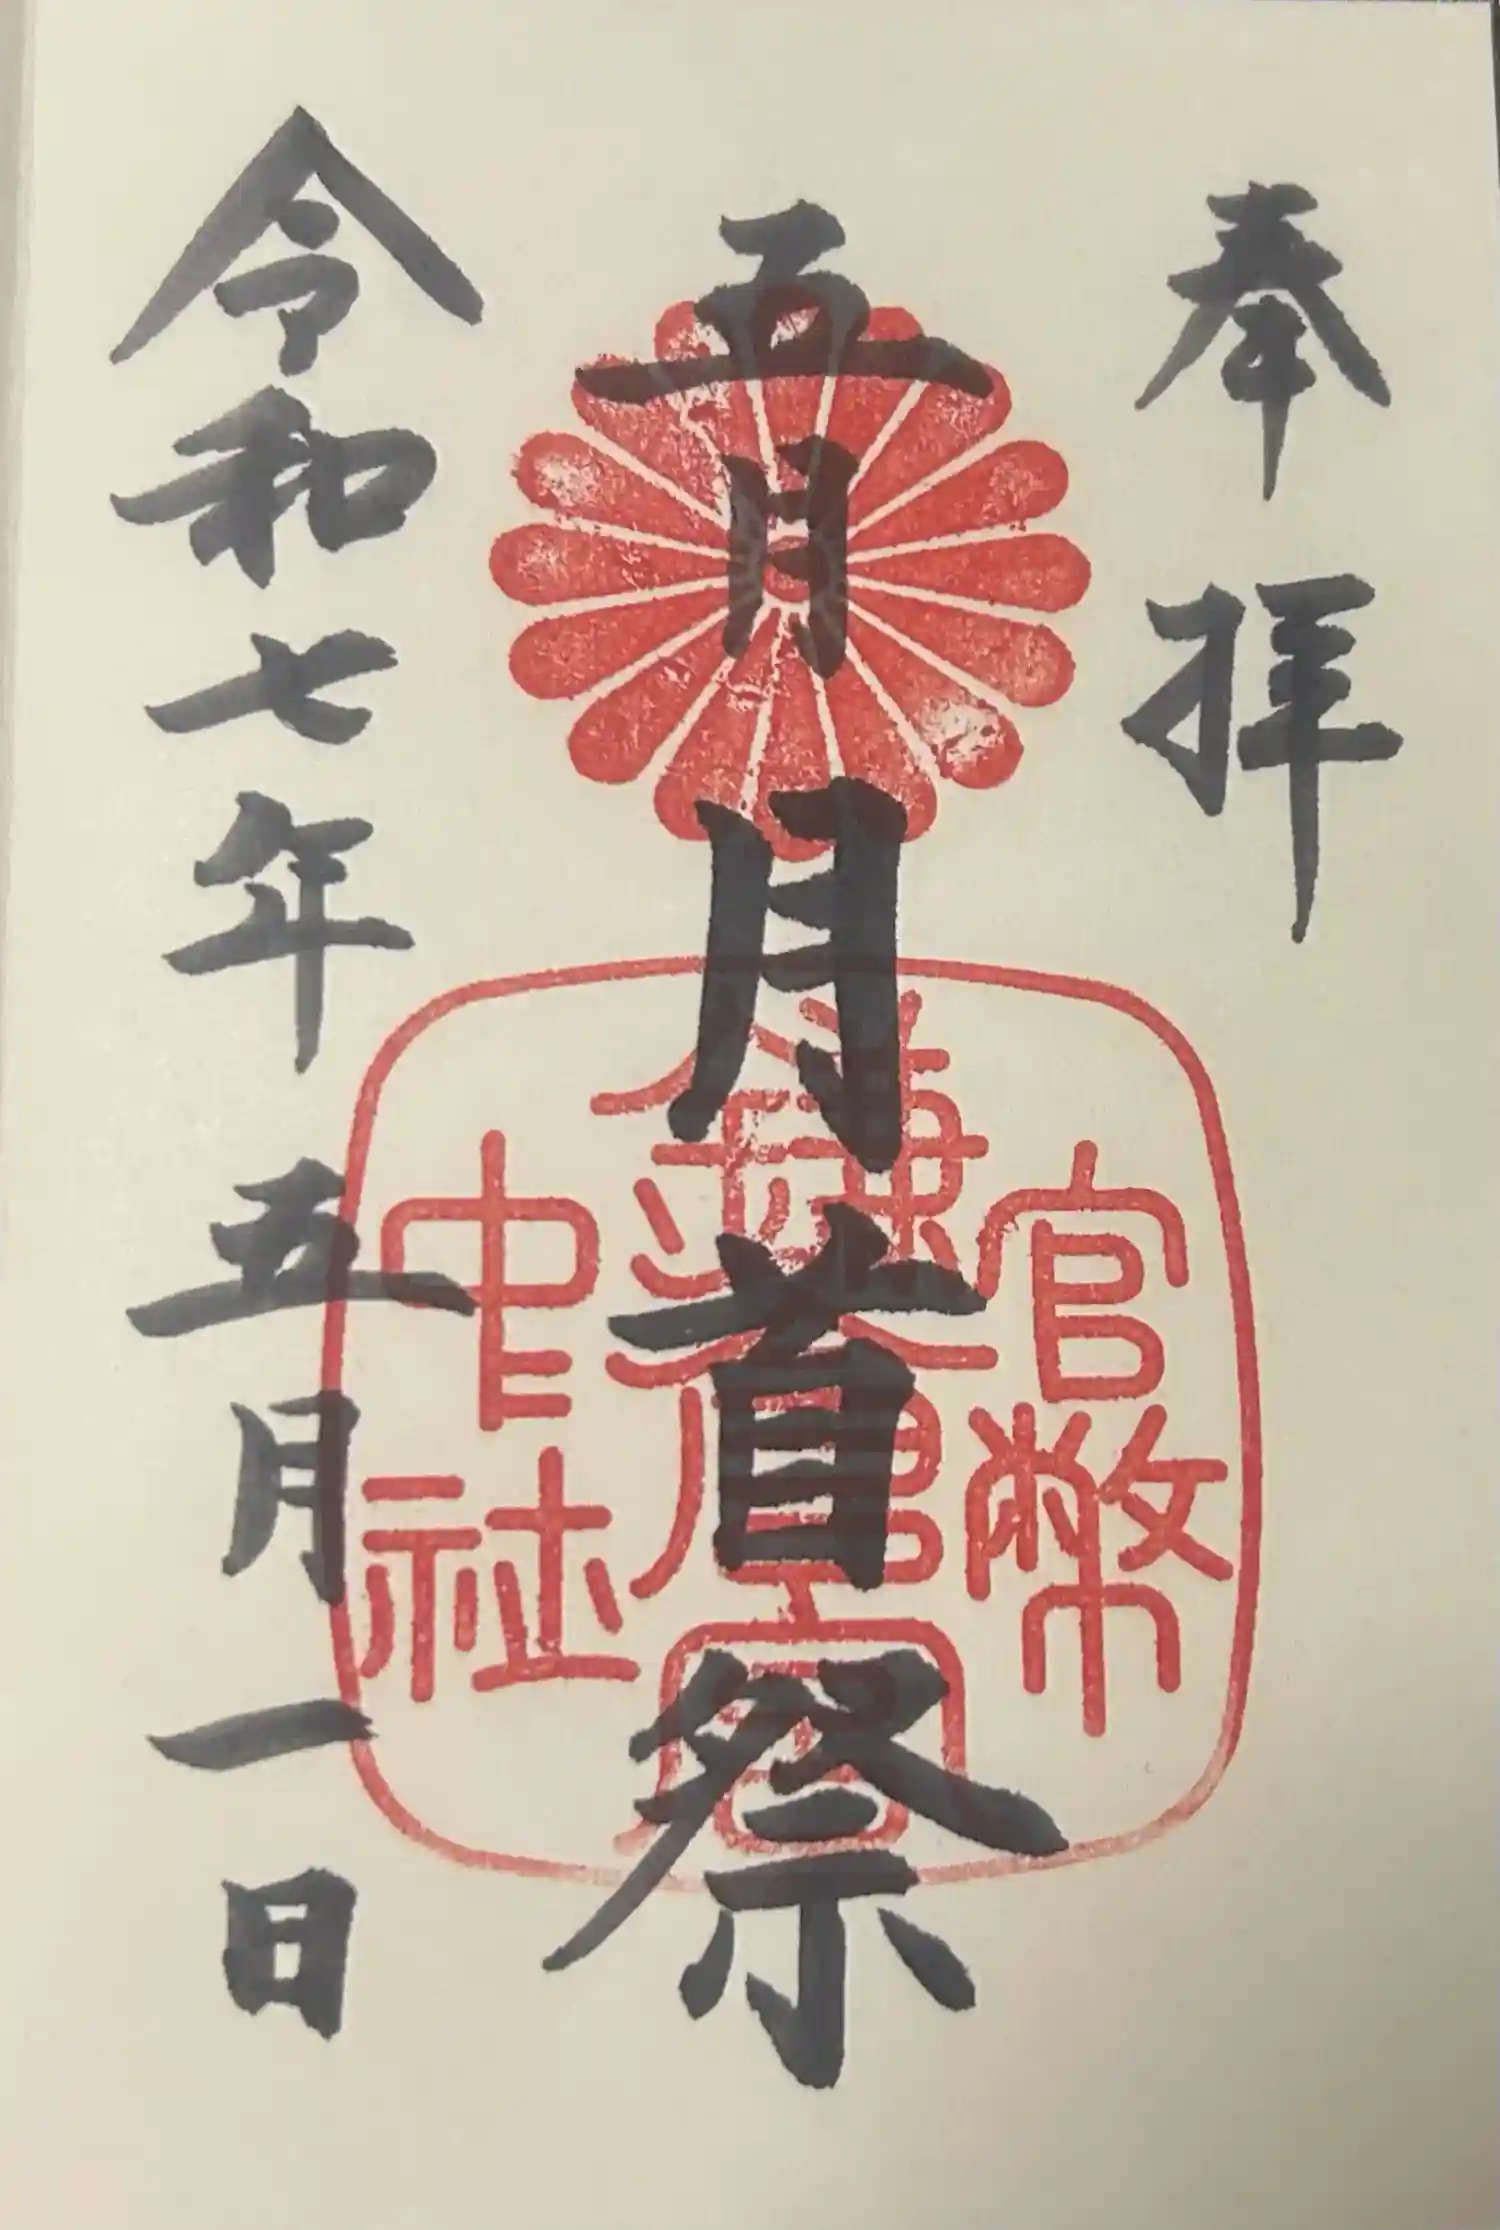 奉拝
五月月首祭
官幣
鎌倉宮
中社
令和七年五月一日